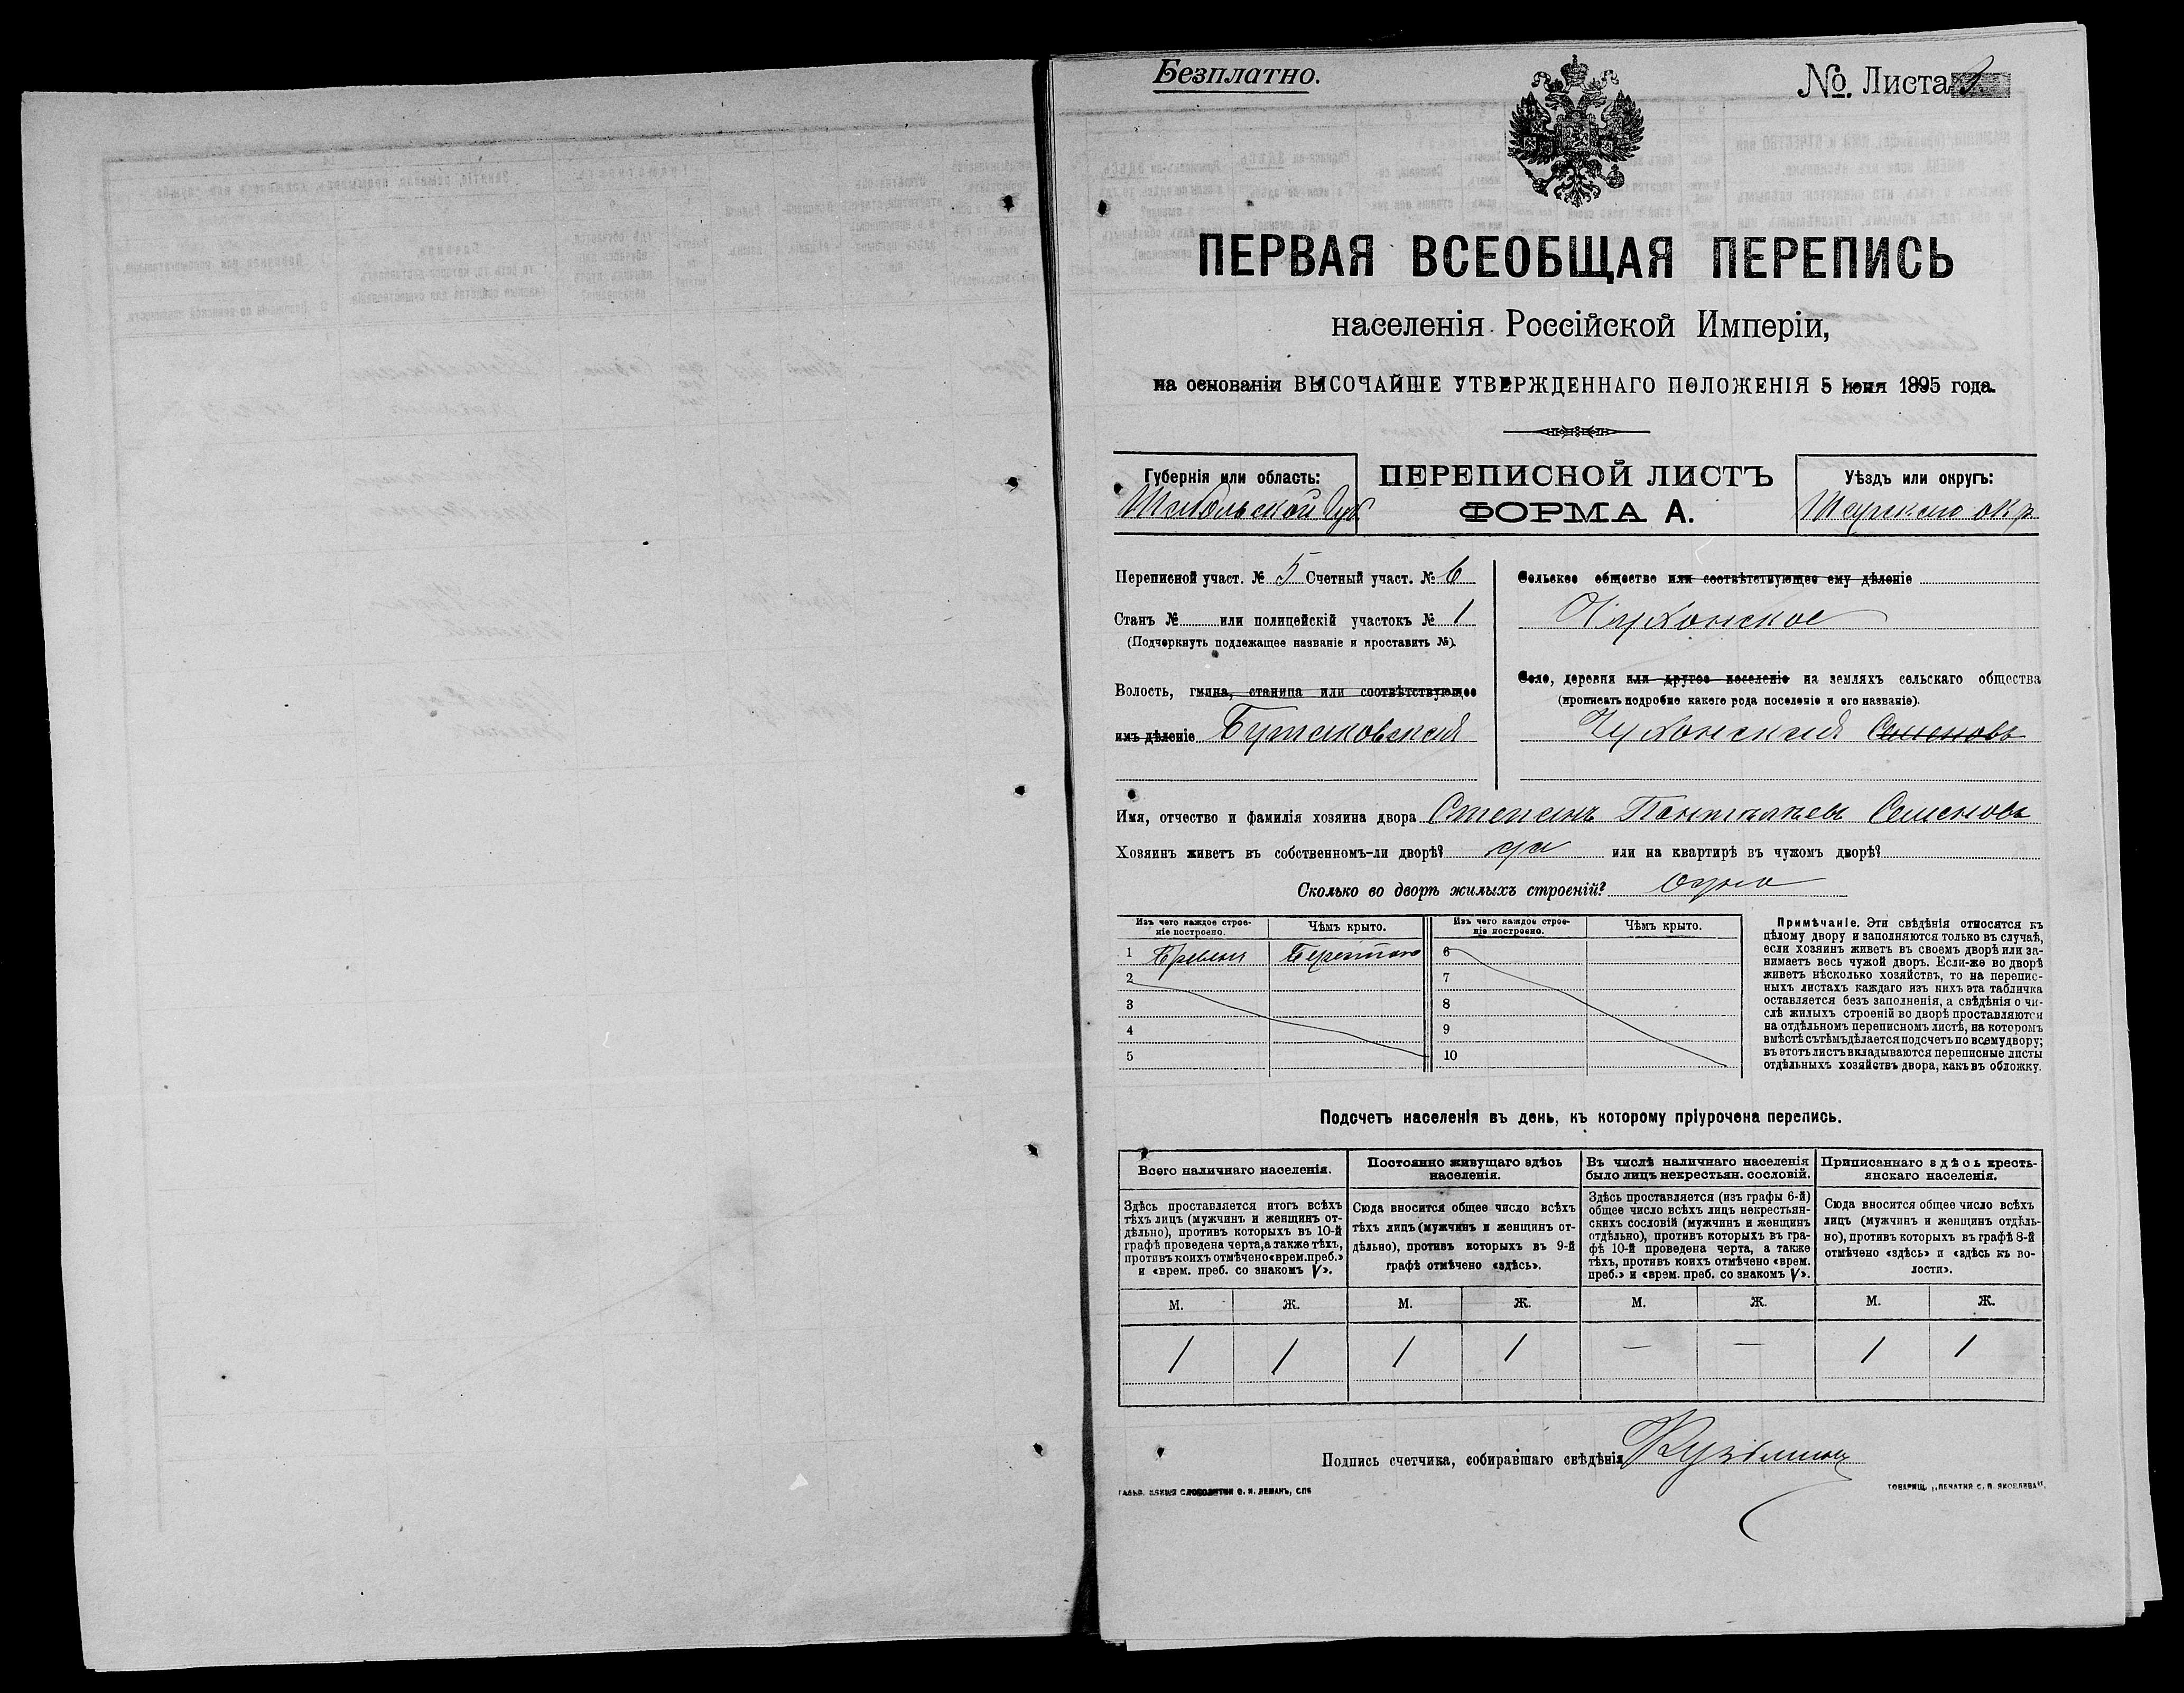 Безплатно.
№. Листа
ПЕРВАЯ ВСЕОБЩАЯ ПЕРЕПИСЬ
населенія Россійской Имперіи,
на основаніи ВЫСОЧАЙШЕ УТВЕРЖДЕННАГО ПОЛОЖЕНІЯ 5 Іюня 1895 года.
Губернія или область:
Тобольской Губ
ПЕРЕПИСНОЙ ЛИСТЪ
ФОРМА А.
Уѣздъ или округъ:
Тарскаго окр
Переписной участ. № 5 Счетный участ. № 6
Станъ № или полицейскій участокъ № 1
(Подчеркнуть подлежащее названіе и проставить №).
Волость, гмина, станица или соотвѣтствующее
имъ дѣленіе Бутаковская
Сельское общество или соотвѣтствующее ему дѣленіе
Чухонское
Село, деревня или другое поселеніе на земляхъ сельскаго общества
(прописать подробно какого рода поселеніе и его названіе).
Чухонская Семеновъ
Имя, отчество и фамилія хозяина двора Степанъ Семеновъ
Хозяинъ живетъ въ собственномъ-ли дворѣ? да или на квартирѣ въ чужомъ дворѣ?
Сколько во дворѣ жилыхъ строеній? одно
Изъ чего каждое строе-
ніе построено.
Чѣмъ крыто.
Изъ чего каждое строе-
ніе построено.
Чѣмъ крыто.
1 Берестою 6
2 7
3 8
4 9
5 10
Примѣчаніе. Эти свѣдѣнія относятся къ
цѣлому двору и заполняются только въ случаѣ,
если хозяинъ живетъ въ своемъ дворѣ или за-
нимаетъ весь чужой дворъ. Если-же во дворѣ
живетъ нѣсколько хозяйствъ, то на перепис-
ныхъ листахъ каждаго изъ нихъ эта табличка
оставляется безъ заполненія, а свѣдѣнія о чи-
слѣ жилыхъ строеній во дворѣ проставляются
на отдѣльномъ переписномъ листѣ, на которомъ
вмѣстѣ съ тѣмъ дѣлается подсчетъ по всему двору;
въ этотъ листъ вкладываются переписные листы
отдѣльныхъ хозяйствъ двора, какъ въ обложку.
Подсчетъ населенія въ день, къ которому пріурочена перепись.
Всего наличнаго населенія.
Постоянно живущаго здѣсь
населенія.
Въ числѣ наличнаго населенія
было лицъ некрестьян. сословій.
Приписаннаго здѣсь кресть-
янскаго населенія.
Здѣсь проставляется итогъ всѣхъ
тѣхъ лицъ (мужчинъ и женщинъ от-
дѣльно), противъ которыхъ въ 10-й
графѣ проведена черта, а также тѣхъ,
противъ коихъ отмѣчено «врем. преб.»
и «врем. преб. со знакомъ V».
Сюда вносится общее число всѣхъ
тѣхъ лицъ (мужчинъ и женщинъ от-
дѣльно), противъ которыхъ въ 9-й
графѣ отмѣчено «здѣсь».
Здѣсь проставляется (изъ графы 6-й)
общее число всѣхъ лицъ некрестьян-
скихъ сословій (мужчинъ и женщинъ
отдѣльно), противъ которыхъ въ гра-
фѣ 10-й проведена черта, а также
тѣхъ, противъ коихъ отмѣчено «врем.
преб.» и «врем. преб. со знакомъ V».
Сюда вносится общее число всѣхъ
лицъ (мужчинъ и женщинъ отдѣль-
но), противъ которыхъ въ графѣ 8-й
отмѣчено «здѣсь» и «здѣсь къ во-
лости».
М. Ж. М. Ж. М. Ж. М. Ж.
1 1 1 1 — — 1 1
Подпись счетчика, собиравшаго свѣдѣнія Кузьминъ
СЛОВОЛИТНИ О. И. ЛЕМАНЪ, СПБ
ТОВАРИЩ. „ПЕЧАТНЯ С. П. ЯКОВЛЕВА“.